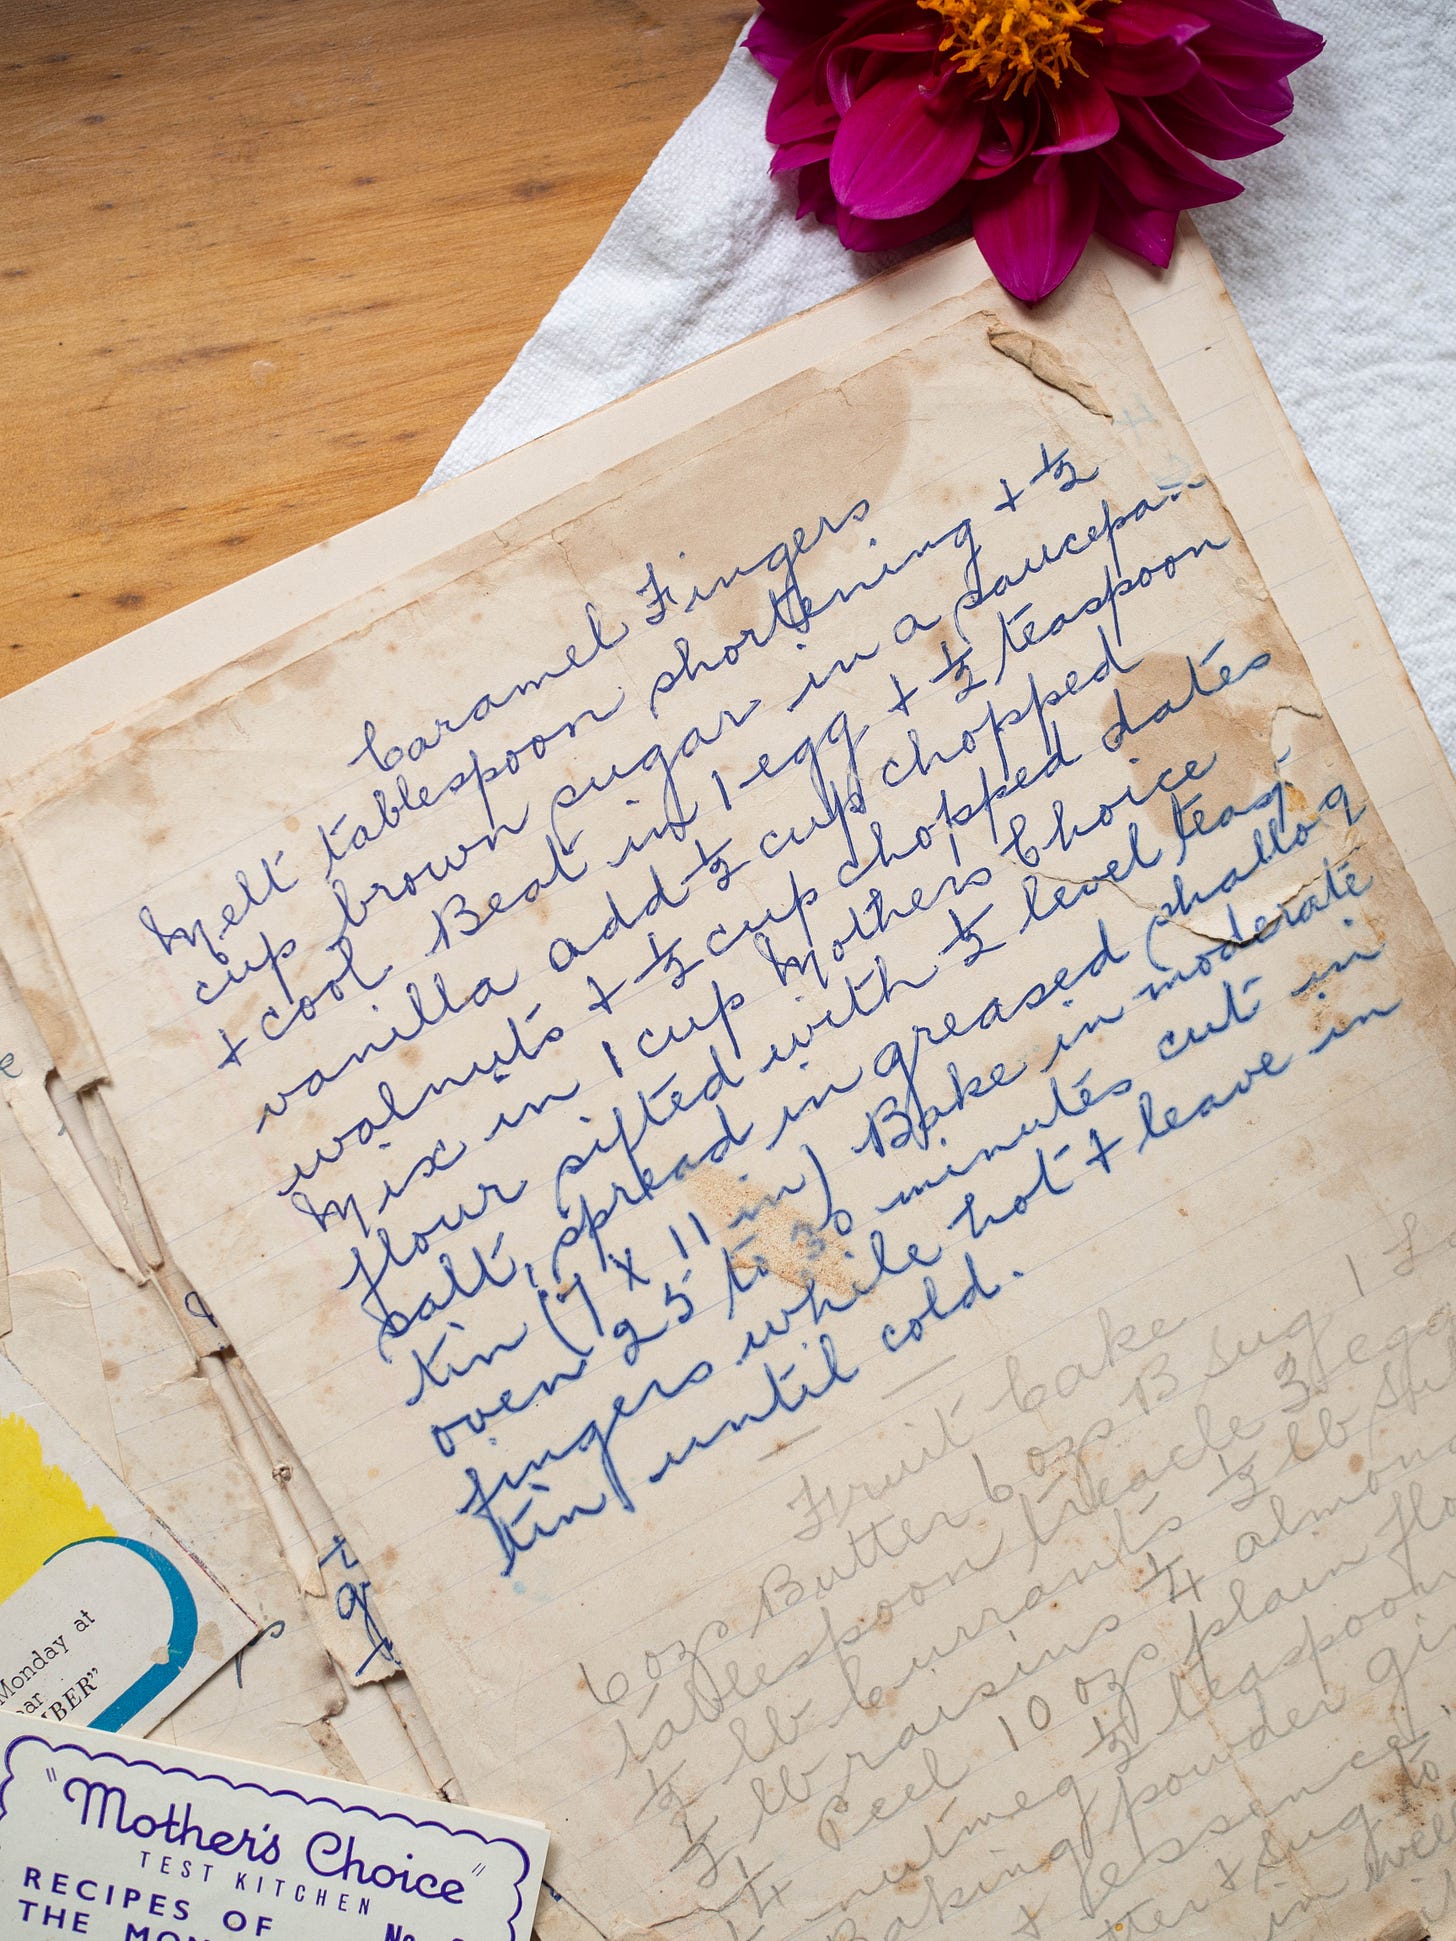 Caramel Fingers
Melt tablespoon shortening + ½
cup brown sugar in a saucepan
+ cool Beat in 1 egg + ½ teaspoon
vanilla add ½ cup chopped
walnuts + ½ cup chopped dates
Mix in 1 cup Mothers Choice
flour sifted with ½ level teasp
salt, spread in greased (shallo
tin (7 x 11 in) Bake in moderate
oven 25 to 30 minutes cut in
fingers while hot + leave in
tin until cold.
Fruit Cake
6 ozs Butter 6 ozs B Sug 1
tablespoon treacle 3 egg
½ lb Currants ½ lb
½ lb raisins ¼ almon
¼ Peel 10 ozs plain flo
nutmeg ½ teaspoon
Baking powder gi
+ essence
+ sug to
in well
Monday at
"Mother's Choice"
TEST KITCHEN
RECIPES OF
THE MON
No.